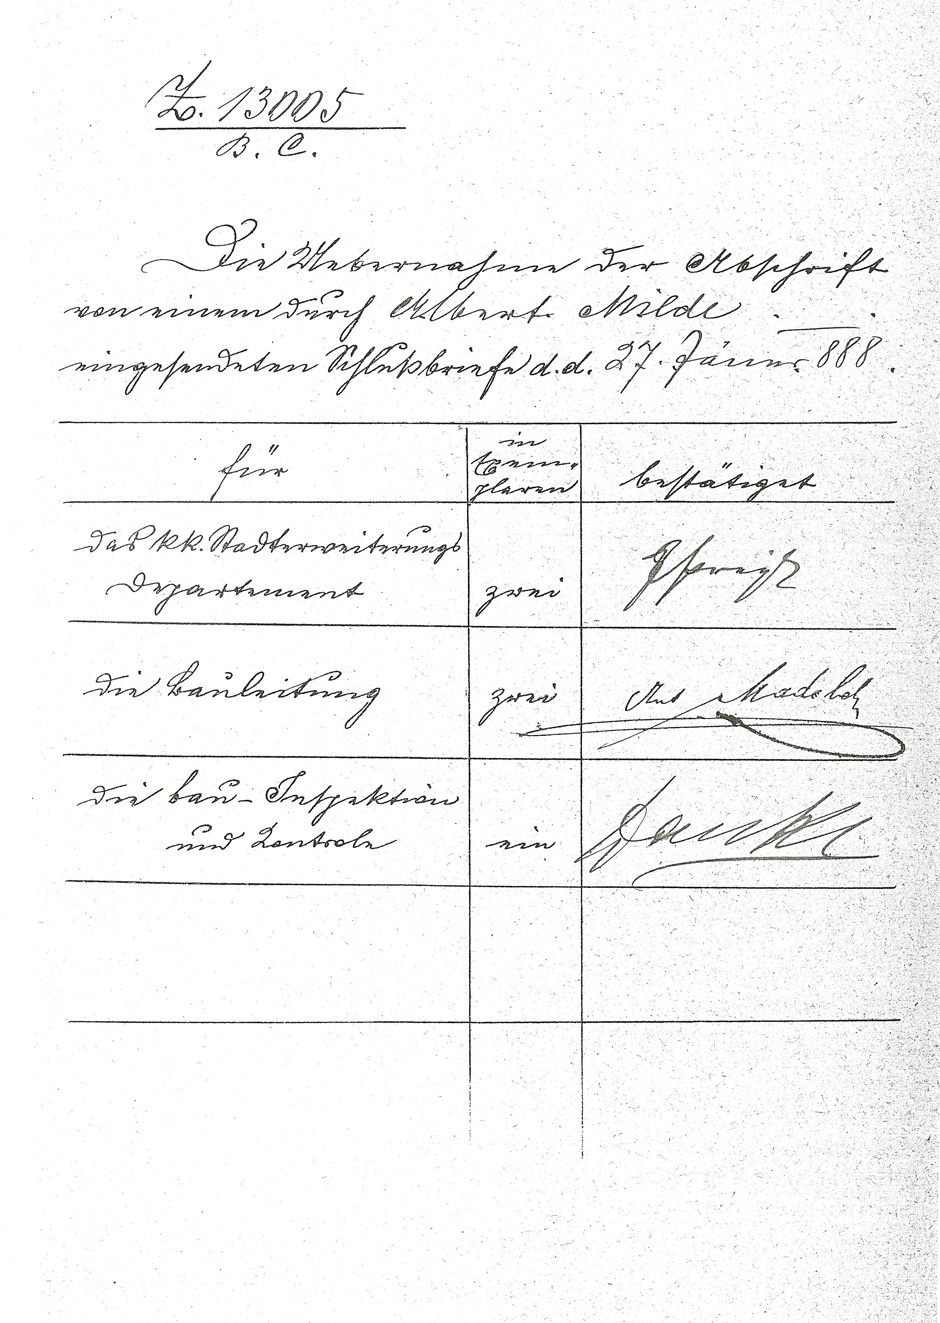 Z. 13005
B. C.
Die Uebernahme der Abschrift
von einem durch Albert Milde
eingesendeten Schlußbriefe d. d. 27. Jänner 888.
für
in
Exem-
plaren
bestätiget
das kk. Stadterweiterungs
Departement
zwei
die Bauleitung
zwei
die Bau-Inspektion
und Kontrole
ein